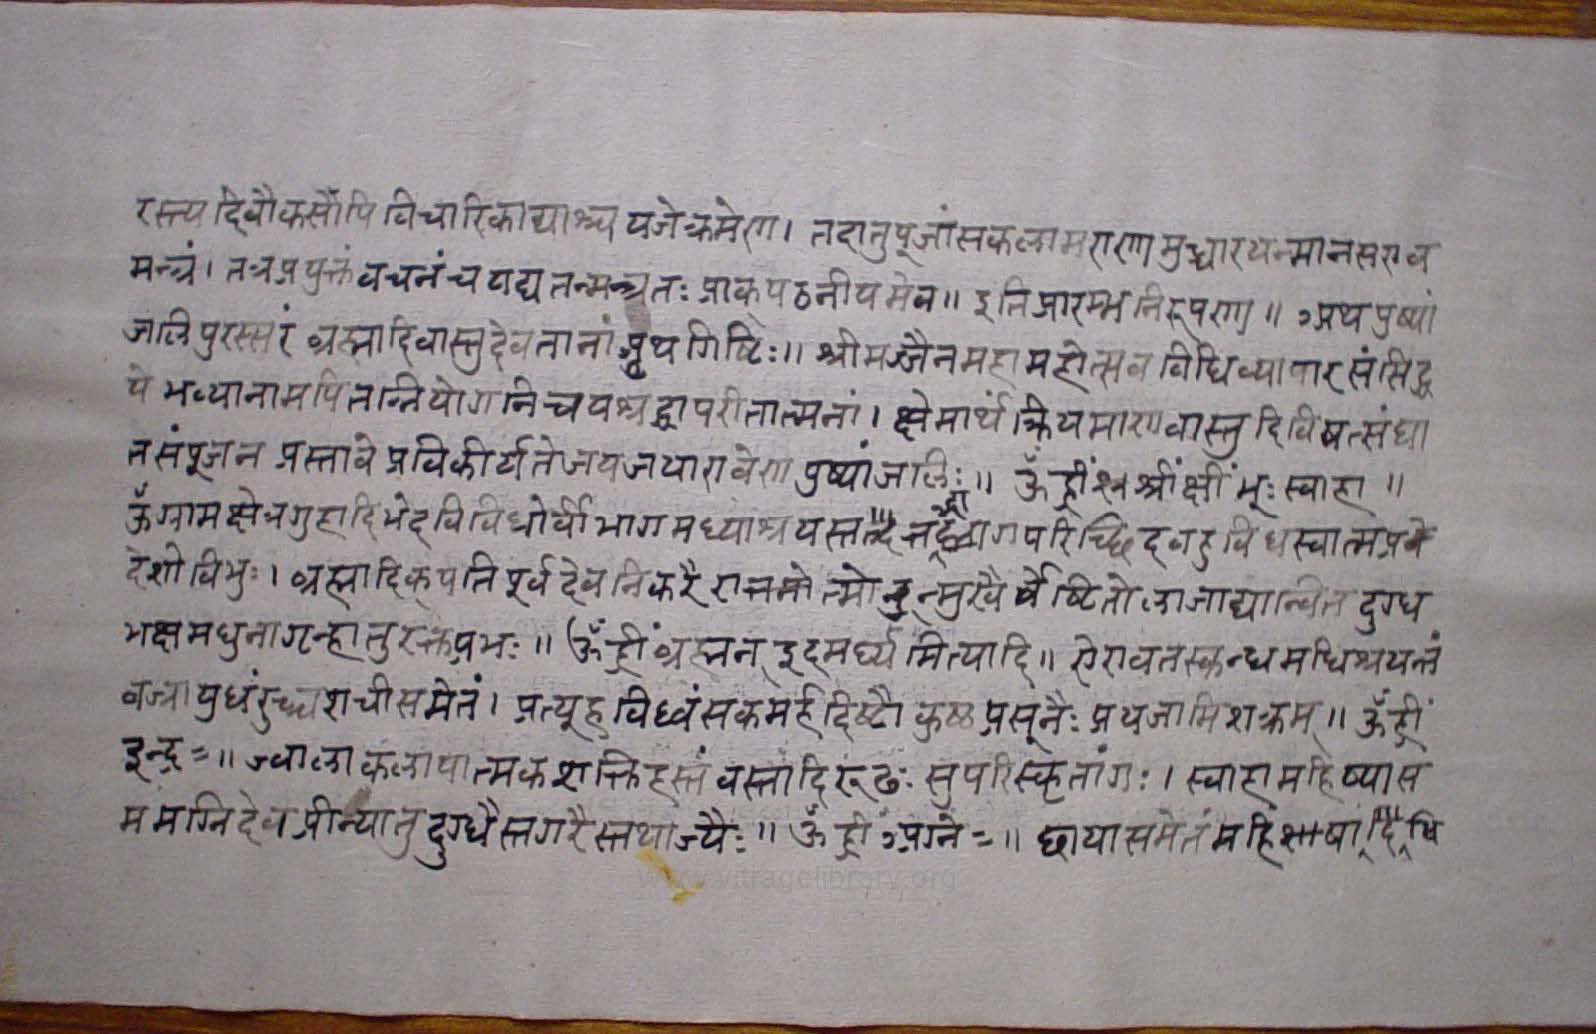 रस्त्यदिवौकसोंपि विचारिकाद्याश्च यजेत्क्रमेण। तदानुपूजांसकलामराणामुच्चारयन्मानसराव
मन्त्रं। तत्र प्रयुक्तं वचनं च पद्य तन्मन्त्रतः प्राक् पठनीयमेव॥ इति प्रारम्भनिरूपणा॥ अथ पुष्पां
जालिपुरस्सरं ब्रह्मादिवास्तुदेवतानां पृथगिष्टिः॥ श्रीमज्जैनमहामहोत्सव विधिव्यापारसंसिद्ध
ये भव्यानामपि तन्नियोगनिचयश्रद्धापरीतात्मनां। क्षेमार्थं क्रियमाणवास्तुदिविषत्संघा
तसंपूजन प्रस्तावे प्रविकीर्यते जयजयारावेण पुष्पांजलिः॥ ॐ ह्रीं श्रीं क्षीं भूः स्वाहा॥
ॐ ग्रामक्षेत्रगृहादिभेदविविधोर्वीभागमध्याश्रयस्त परिच्छिद्बहुविधस्वात्मप्रदे
देशो विभुः। ब्रह्मादिक्पतिपूर्वदेवनिकरै न्मुखैर्वेष्टितो लाजाद्यान्वित दुग्ध
भक्षमधुना गृन्हातु रक्तप्रभः॥ ॐ ह्रीं ब्रह्मन् इदमर्घ्यमित्यादि॥ ऐरावतस्कन्धमधिश्रयन्तं
वज्रायुधं रुच्यशचीसमेतं। प्रत्यूहविध्वंसकमर्हदिष्टौ कुष्ठप्रसूनैः प्रयजामि शक्रम्॥ ॐ ह्रीं
इन्द्र=॥ ज्वालाकलापात्मकशक्तिहस्तं वस्तादिरूढः सुपरिस्कृतांगः। स्वाहामहिष्यास
ममग्निदेव प्रीन्यातु दुग्धैस्तगरैस्तथाज्यैः॥ ॐ ह्रीं अग्ने=॥ छायासमेतं
www.vitragelibrary.org